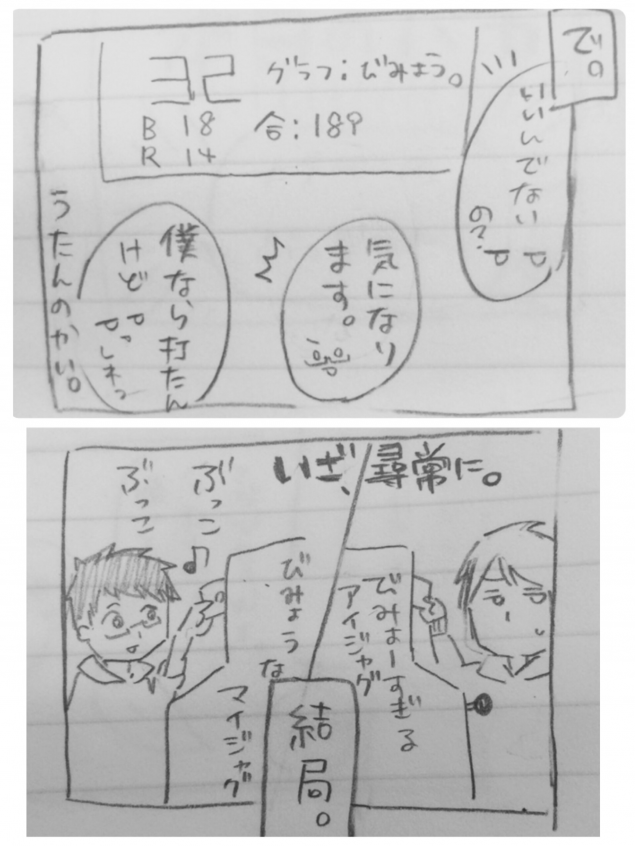 で。
いいんでない
の?
32
グラフ:びみょう。
B 18
合:189
R 14
気になり
ます。
僕なら打たん
けど
うたんのかい。
いざ、尋常に。
ぶっこ
ぶっこ
♪
びみょーすぎる
アイジャグ
びみょうな
マイジャグ
結局。